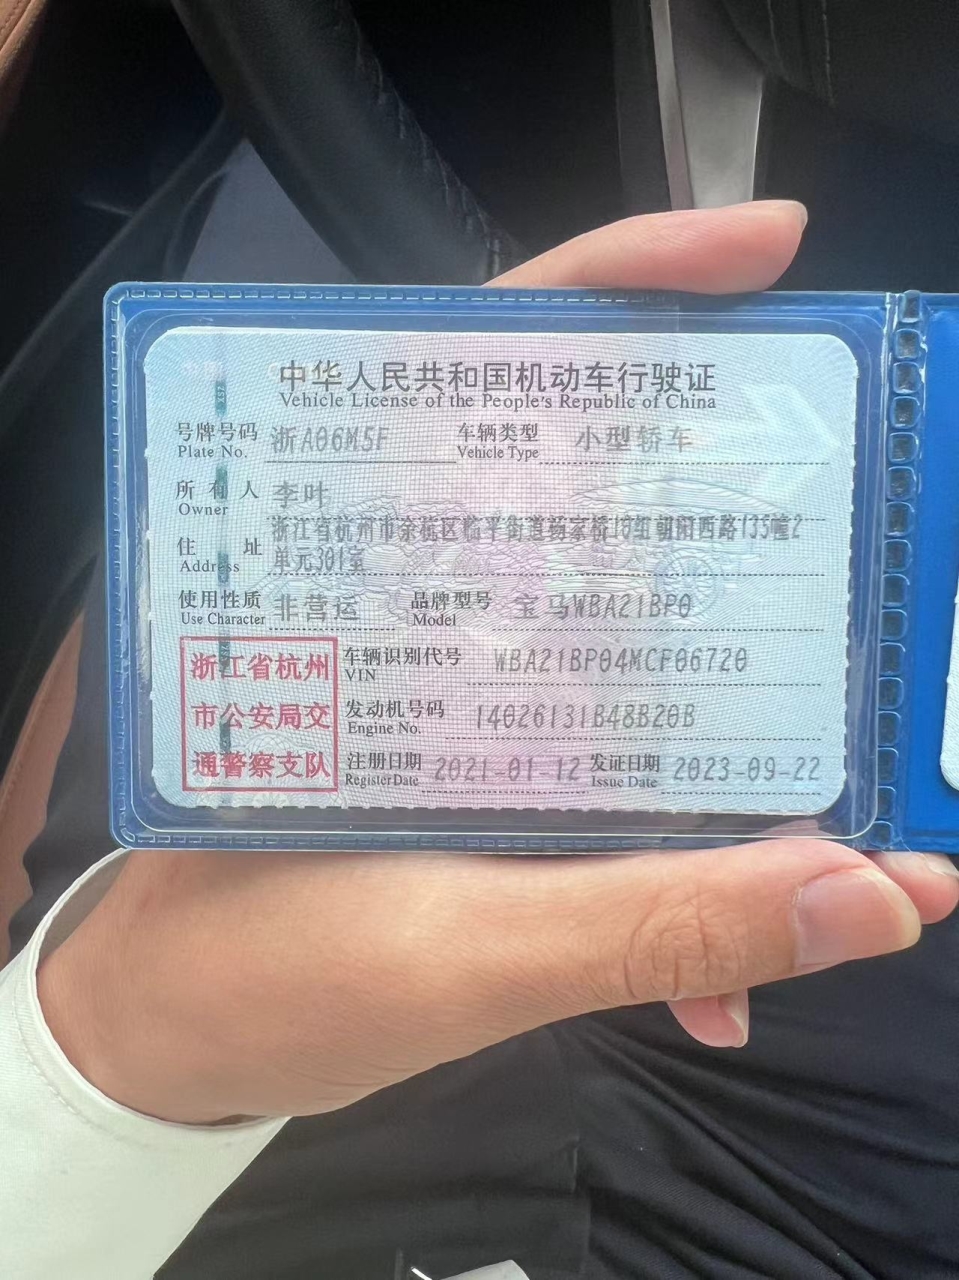 中华人民共和国机动车行驶证
Vehicle License of the People's Republic of China
号牌号码 浙A06M5F 车辆类型 小型轿车
Plate No. Vehicle Type
所有人 李叶
Owner
浙江省杭州市余杭区临平街道杨家桥10组朝阳西路135幢2
住址 单元301室
Address
使用性质 非营运 品牌型号 宝马WBA21BP0
Use Character Model
浙江省杭州 车辆识别代号 WBA21BP04MCF06720
VIN
市公安局交 发动机号码 14026131B48B20B
Engine No.
通警察支队 注册日期 2021-01-12 发证日期 2023-09-22
Register Date Issue Date